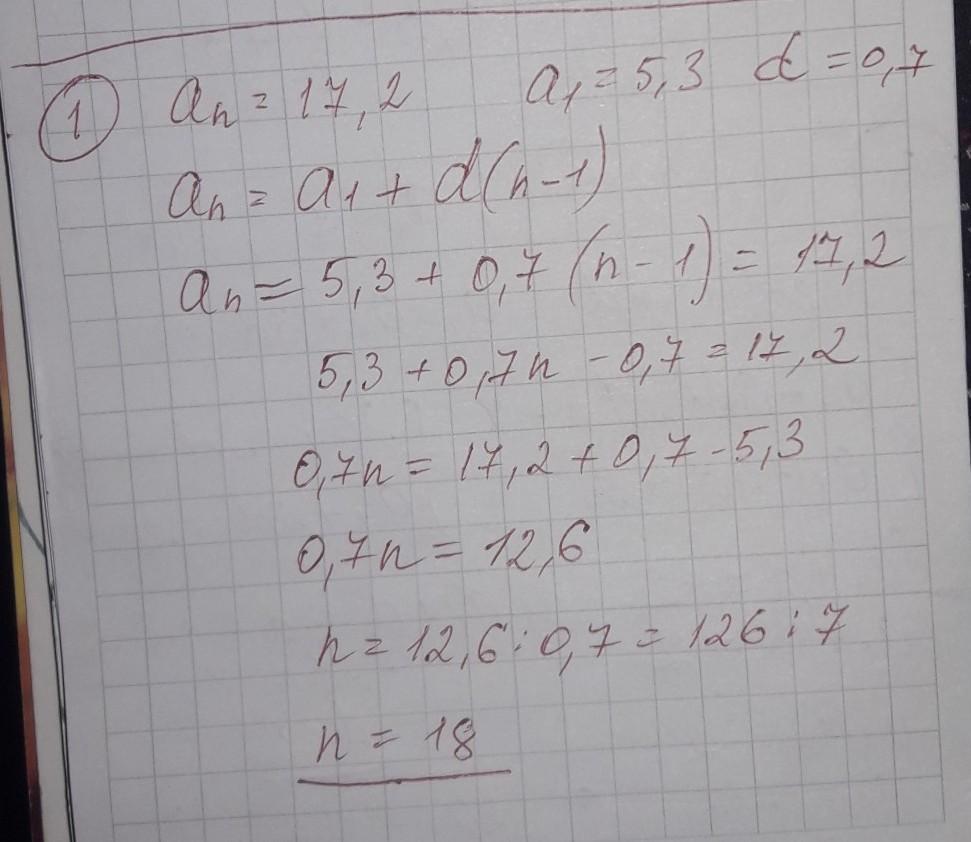 1 aₙ = 17,2 a₁ = 5,3 d = 0,7
aₙ = a₁ + d(n-1)
aₙ = 5,3 + 0,7 (n - 1) = 17,2
5,3 + 0,7n - 0,7 = 17,2
0,7n = 17,2 + 0,7 - 5,3
0,7n = 12,6
n = 12,6 : 0,7 = 126 : 7
n = 18